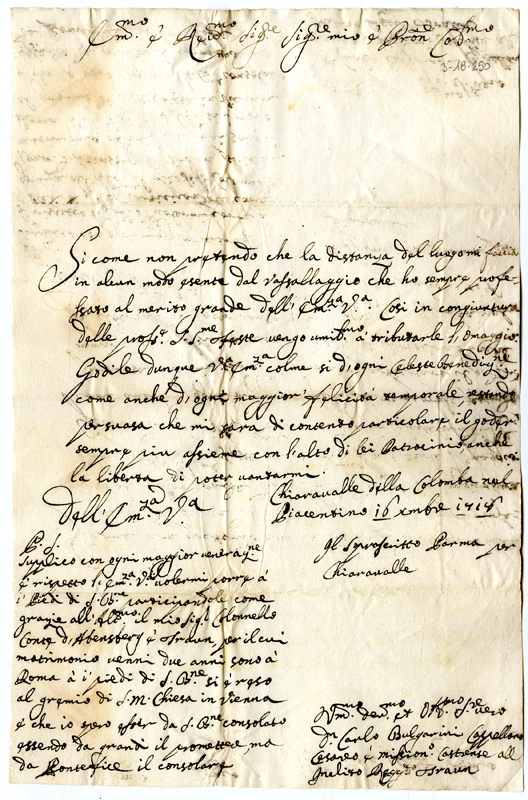 Em.mo e Re.mo Sig.re Sig.re mio e Pron. Col.mo
5-18-250
Si come non pretendo che la distanza del luogo mi faccia
in alcun modo esente dal vassallaggio che ho sempre profe-
ssato al merito grande dell' Em.za V.a Cosi in congiuntura
delle pross.e S.S.me Feste vengo umil.mo à tributarle l'omaggio
Godile dunque V.a Em.za colme si d'ogni Celeste Benedizne
come anche d'ogni maggior felicità temporale restando
persuasa che mi sarà di contento particolare il goder
sempre più assieme con l'alto di lei Patrocinio anche
la libertà di poter vantarmi
Dell' Em.za V.a
Chiaravalle della Colomba nel
Piacentino 16 xmbre 1715
Il sposcritto Parma per
Chiaravalle
P.S.
Supplico con ogni maggior venerazne
e rispetto l'Em.za V.a volermi porre à
i Piedi di S. Bne participandole come
grazie all' Alt.mo il mio Sig.r Colonnello
Conte d'Abensberg e Traun per il cui
matrimonio venni due anni sono à
Roma à i piedi di S. Bne si è reso
al gremio di S. M. Chiesa in Vienna
e che io spero esser da S. Bne consolato
essendo da grandi il promettere ma
da Pontefice il consolare
Um.mo dev.mo et Obb.mo Se.re vero
Dn Carlo Bulgarini Cappellano
Cesareo e mission.o Castrense all
Inclito Regg.to Traun